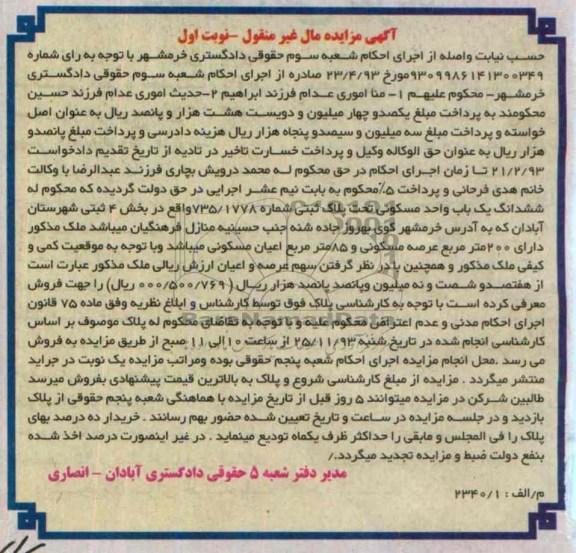 آگهی مزایده مال غیر منقول -نوبت اول
حسب نیابت واصله از اجرای احکام شعبه سوم حقوقی دادگستری خرمشهر با توجه به رای شماره
۹۳۰۹۹۸۶۱۴۱۳۰۰۳۴۹مورخ ۲۳/۴/۹۳ صادره از اجرای احکام شعبه سوم حقوقی دادگستری
خرمشهر- محکوم علیهم ۱- منا اموری عدام فرزند ابراهیم ۲-حدیث اموری عدام فرزند حسین
محکومند به پرداخت مبلغ یکصدو چهار میلیون و دویست هشت هزار و پانصد ریال به عنوان اصل
خواسته و پرداخت مبلغ سه میلیون و سیصدو پنجاه هزار ریال هزینه دادرسی و پرداخت مبلغ پانصدو
هزار ریال به عنوان حق الوکاله وکیل و پرداخت خسارت تاخیر در تادیه از تاریخ تقدیم دادخواست
۲۱/۲/۹۳ تا زمان اجرای احکام در حق محکوم له محمد درویش بچاری فرزند عبدالرضا با وکالت
خانم هدی فرحانی و پرداخت ۵٪محکوم به بابت نیم عشر اجرایی در حق دولت گردیده که محکوم له
ششدانگ یک باب واحد مسکونی تحت پلاک ثبتی شماره ۷۳۵/۱۷۷۸واقع در بخش ۴ ثبتی شهرستان
آبادان که به آدرس خرمشهر کوی بهروز جاده شنه جنب حسینیه منازل فرهنگیان میباشد ملک مذکور
دارای ۲۰۰متر مربع عرصه مسکونی و ۸۵متر مربع اعیان مسکونی میباشد وبا توجه به موقعیت کمی و
کیفی ملک مذکور و همچنین با در نظر گرفتن سهم عرصه و اعیان ارزش ریالی ملک مذکور عبارت است
از هفتصدو شصت و نه میلیون وپانصد پانصد هزار ریال (۰۰۰/۵۰۰/۷۶۹ ریال) را جهت فروش
معرفی کرده است با توجه به کارشناسی پلاک فوق توسط کارشناس و ابلاغ نظریه وفق ماده ۷۵ قانون
اجرای احکام مدنی و عدم اعتراض محکوم علیه و با توجه به تقاضای محکوم له پلاک موصوف بر اساس
کارشناسی انجام شده در تاریخ شنبه ۲۵/۱۱/۹۳ از ساعت ۱۰الی ۱۱ صبح از طریق مزایده به فروش
می رسد .محل انجام مزایده اجرای احکام شعبه پنجم حقوقی بوده ومراتب مزایده یک نوبت در جراید
منتشر میگردد . مزایده از مبلغ کارشناسی شروع و پلاک به بالاترین قیمت پیشنهادی بفروش میرسد
طالبین شرکت در مزایده میتوانند ۵ روز قبل از تاریخ مزایده با هماهنگی شعبه پنجم حقوقی از پلاک
بازدید و در جلسه مزایده در ساعت و تاریخ تعیین شده حضور بهم رسانند . خریدار ده درصد بهای
پلاک را فی المجلس و مابقی را حداکثر ظرف یکماه تودیع مینماید . در غیر اینصورت درصد اخذ شده
بنفع دولت ضبط و مزایده تجدید میگردد./
مدیر دفتر شعبه ۵ حقوقی دادگستری آبادان - انصاری
م/الف : ۲۳۴۰/۱